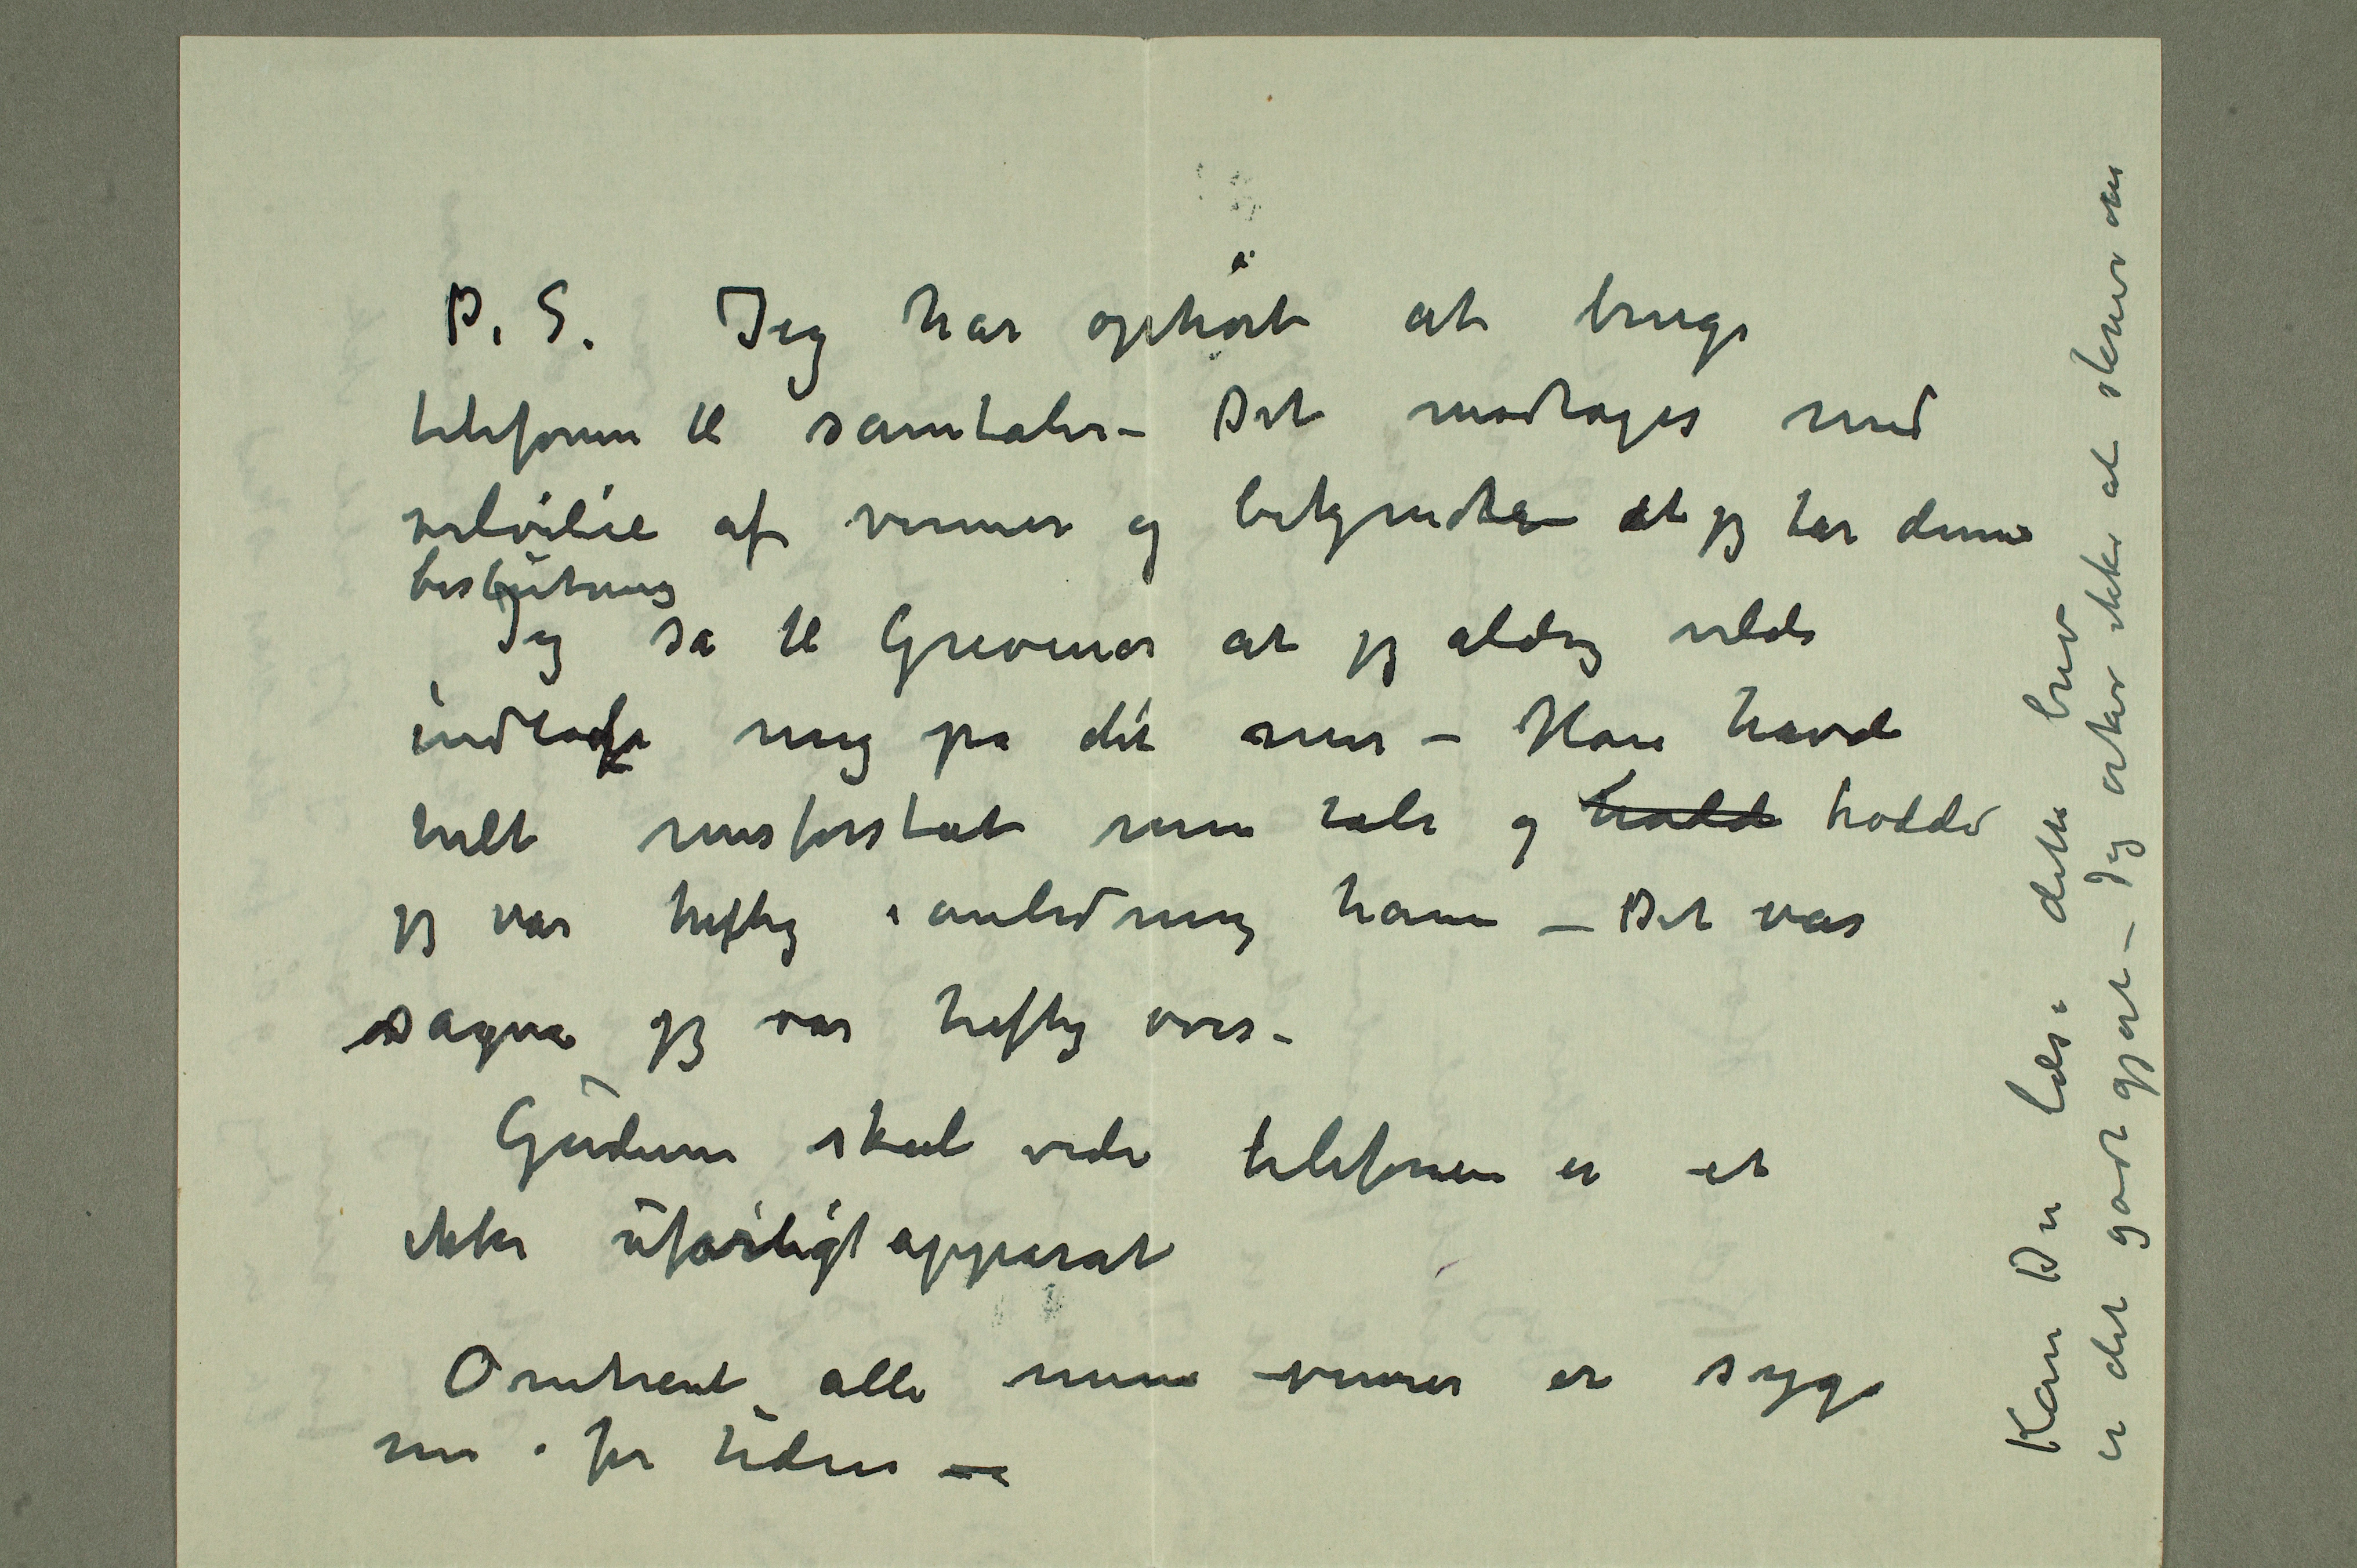 P. S. Jeg har ophört at bruge
telefonen til samtaler – Det modtages med
velvilie af venner og bekjendte at jeg tar denne
beslutning
Jeg sa til Grevenor at jeg aldrig vilde
indlade mig på det mer – Han havde
helt misforståt min tale og trodde trodde
jeg var heftig i anledning ham – Det var
sagen jeg var heftig over –
Guderne skal vide telefonen er et
ikke ufarligt apparat
Omtrent alle mine venner er syge
nu i for tiden –
Kan Du læse dette brev
er det godt gjort – Jeg orker ikke at skrive om